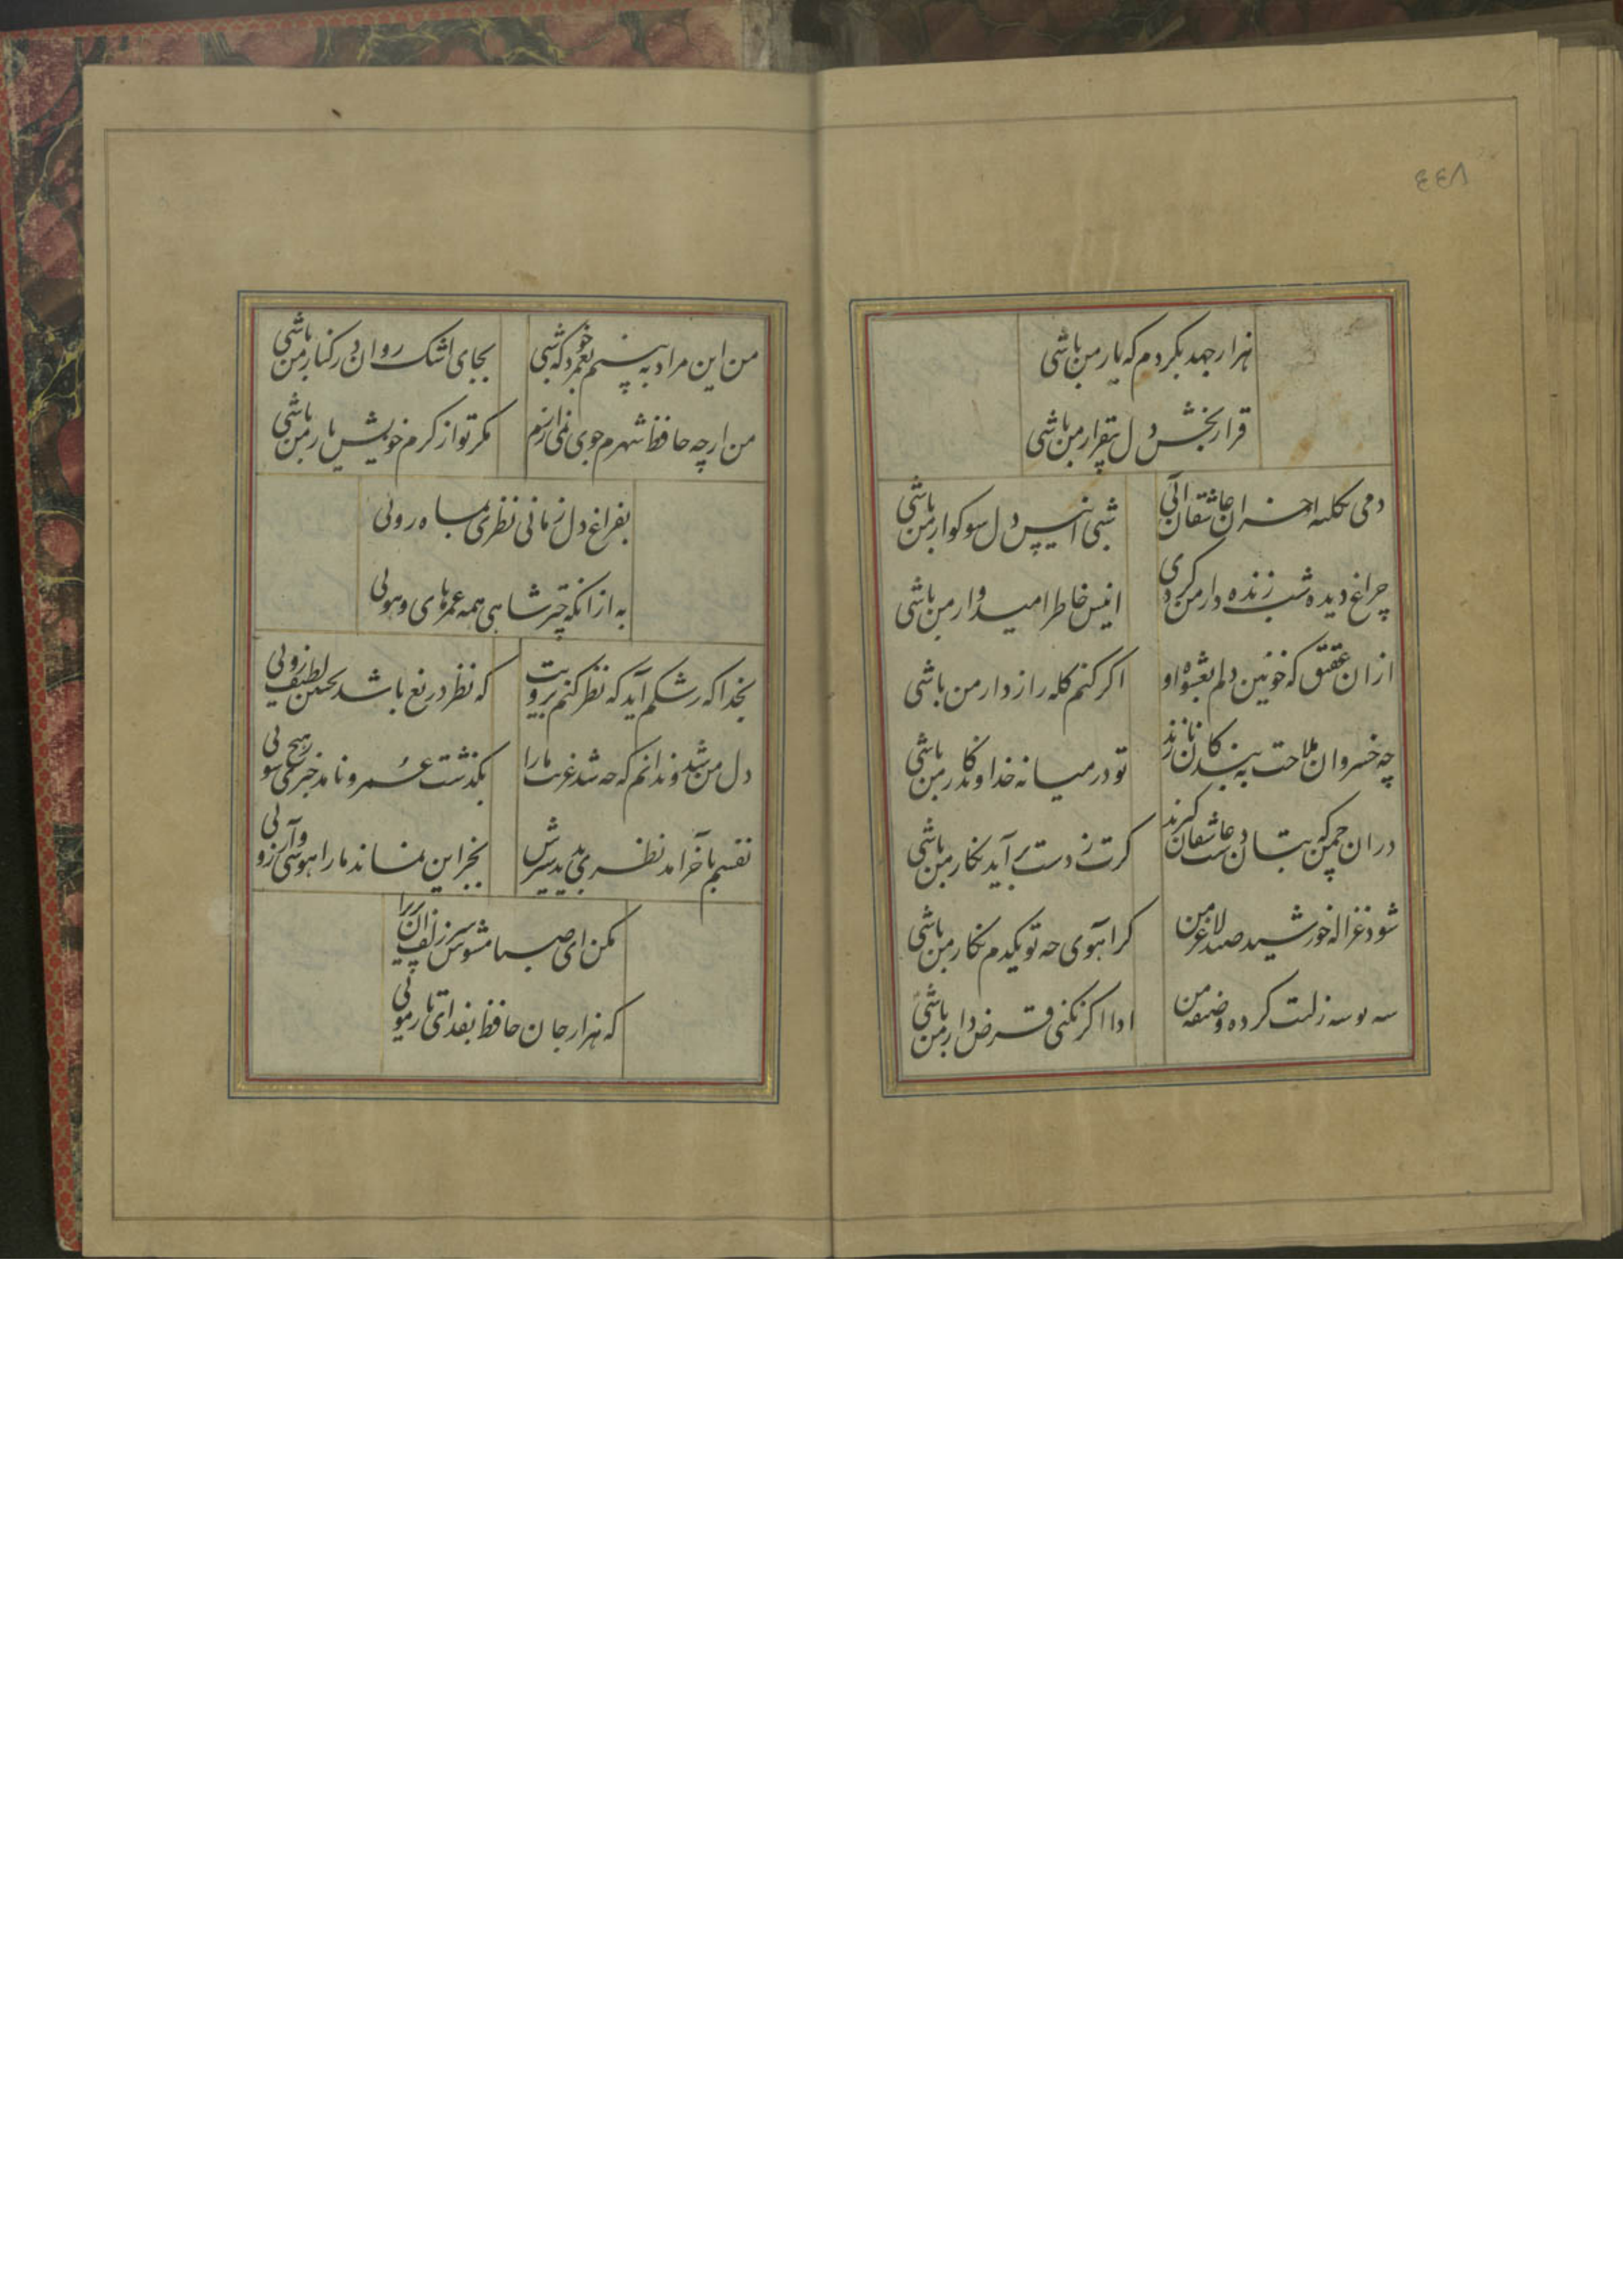 ٤٤٨
هزار جهد بکردم که یار من باشی
قرار بخش دل بیقرار من باشی
دمی بکلبه احزان عاشقان آئی
شبی انیس دل سوکوار من باشی
چراغ دیده شب زنده دار من کردی
انیس خاطر امیدوار من باشی
ازان عقیق که خونین دلم بعشوه او
اکر کنم کله راز دار من باشی
چه خسروان ملاحت به بندکان نازند
تو در میانه خداوندکار من باشی
دران چمن که بتان دست عاشقان کیرند
کرت ز دست برآید نکار من باشی
شود غزاله خورشید صید لاغر من
کر آهوی چه تو یکدم نکار من باشی
سه بوسه زلبت کرده وضیفه من
ادا اکر نکنی قرض دار من باشی
من این مراد به بینم بعمر خود که شبی
بجای اشک روان در کنار من باشی
من ارچه حافظ شهرم جوی نمی ارزم
مکر تو از کرم خویش یار من باشی
بفراغ دل زمانی نظری بماه روئی
به ازانکه چتر شاهی همه عمر های وهوئی
بخدا که رشکم آید که نظر کنم برویت
که نظر دریغ باشد بچنین لطیف روئی
دل من شد وندانم که چه شد غریب مارا
بکذشت عمر ونامد خبرش ز هیچ سوئی
نفسم بآخر آمد نظرم ندید سیرش
بجز این نماند مارا هوسی وآرزوئی
مکن ای صبا مشوش سر زلف آن پری را
که هزار جان حافظ بفدای تار موئی